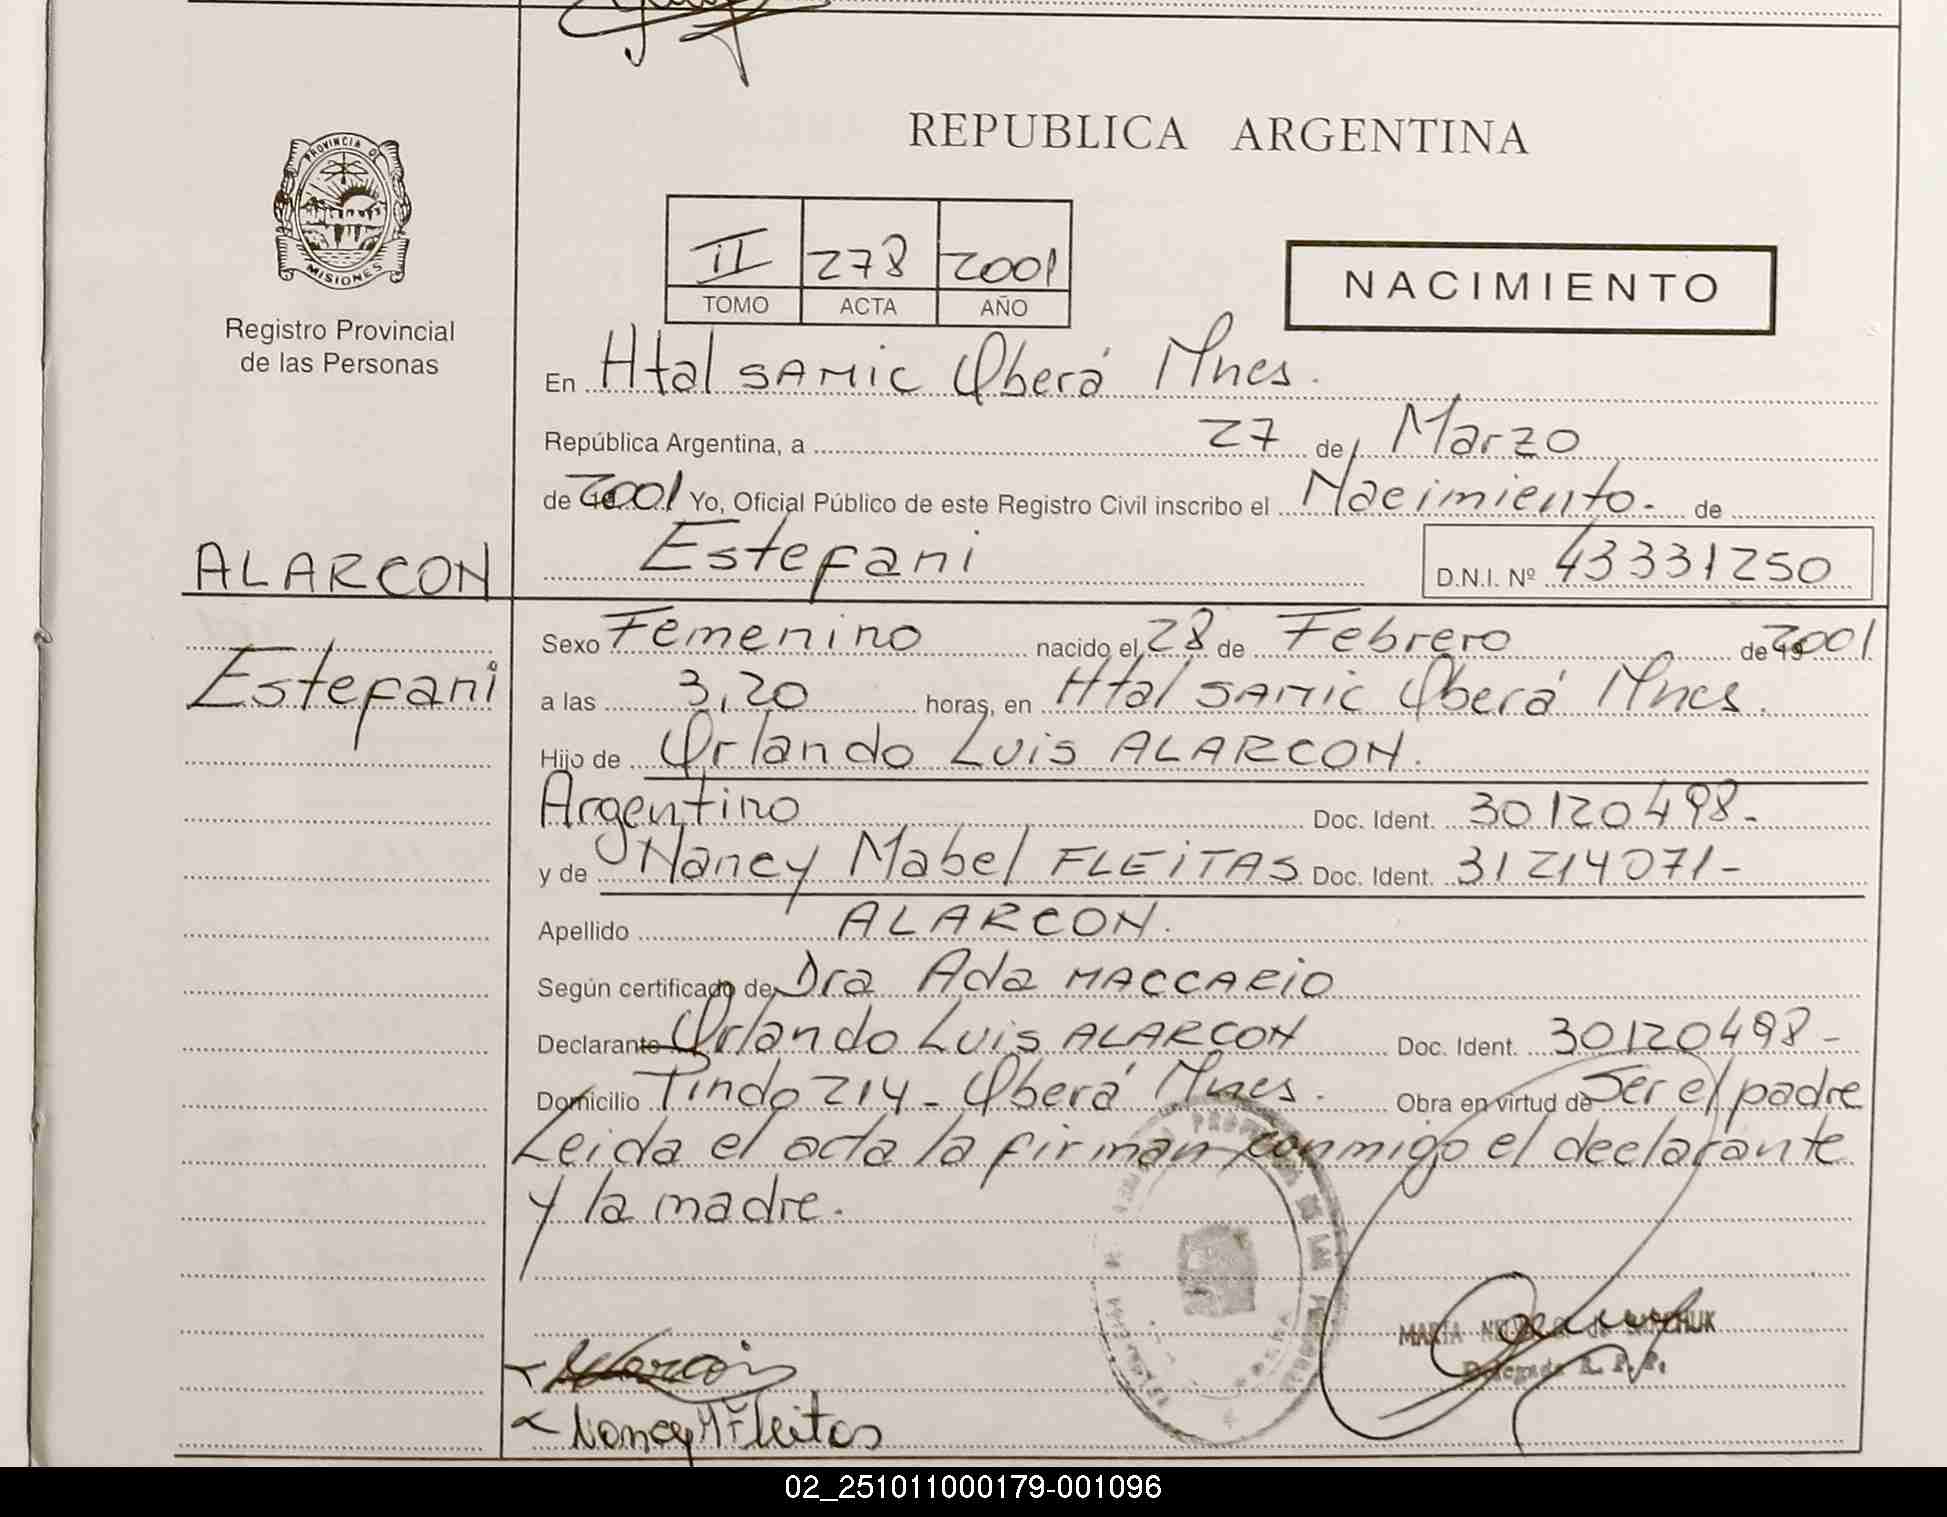 REPUBLICA ARGENTINA
PROVINCIA DE
MISIONES
Registro Provincial
de las Personas
II 278 2001
TOMO ACTA AÑO
NACIMIENTO
En Htal SAMIC Oberá Mnes.
República Argentina, a 27 de Marzo
de 2001 Yo, Oficial Público de este Registro Civil inscribo el Nacimiento- de
ALARCON
Estefani D.N.I. Nº 43331250
Estefani
Sexo Femenino nacido el 28 de Febrero de 2001
a las 3,20 horas, en Htal SAMIC Oberá Mnes.
Hijo de Orlando Luis ALARCON.
Argentino Doc. Ident. 30120498-
y de Nancy Mabel FLEITAS Doc. Ident. 31214071-
Apellido ALARCON.
Según certificado de Dra Ada MACCARIO
Declarante Orlando Luis ALARCON Doc. Ident. 30120498-
Domicilio Pindo 214- Oberá Mnes. Obra en virtud de Ser el padre
Leida el acta la firman conmigo el declarante
y la madre.
MARIA
Delegada R. P. P.
Alarcon
Nancy M Fleitas
02_251011000179-001096